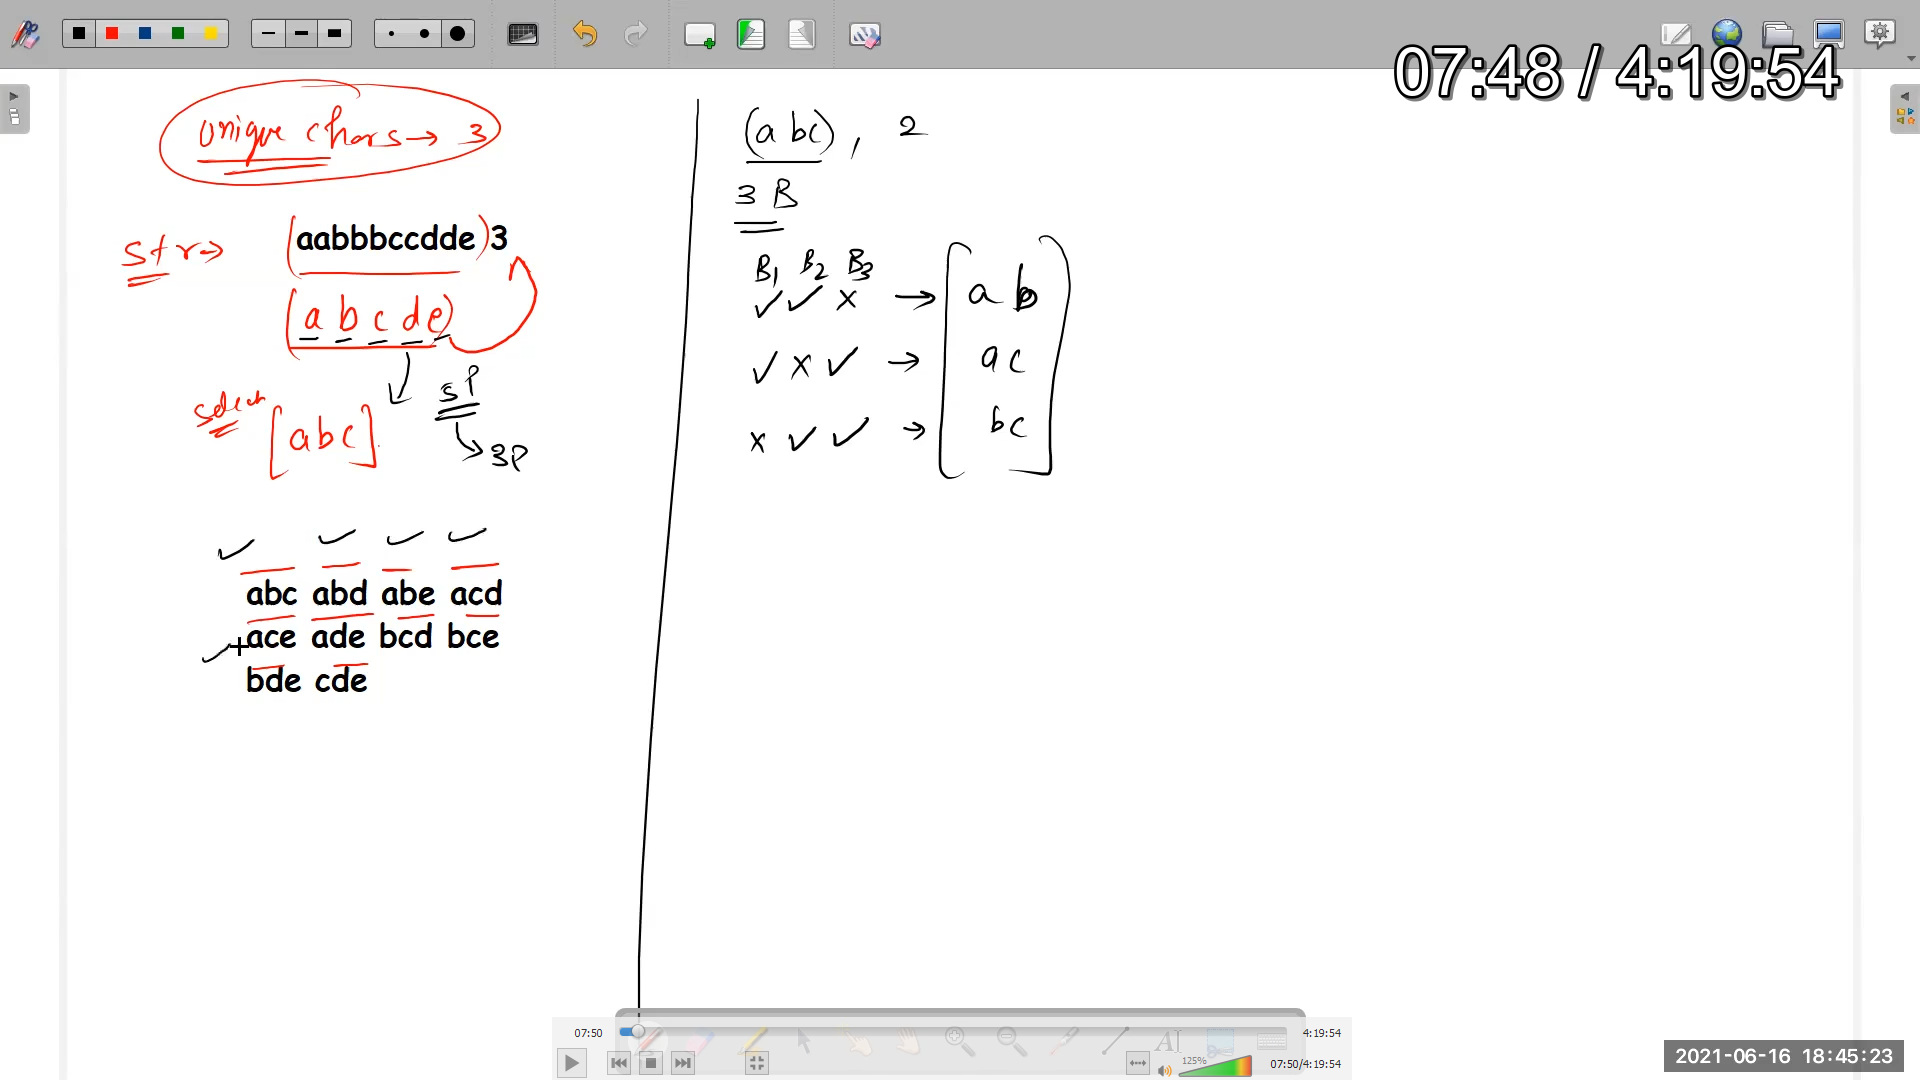 07:48 / 4:19:54
unique chars → 3
str→ (aabbbccdde)3
(a b c d e)
select [abc]
5P
→3P
abc abd abe acd
ace ade bcd bce
bde cde
(a bc), 2
3 B
B1 B2 B3
✓ ✓ x → a b
✓ x ✓ → ac
x ✓ ✓ → bc
07:50 4:19:54
125% 07:50/4:19:54
2021-06-16 18:45:23